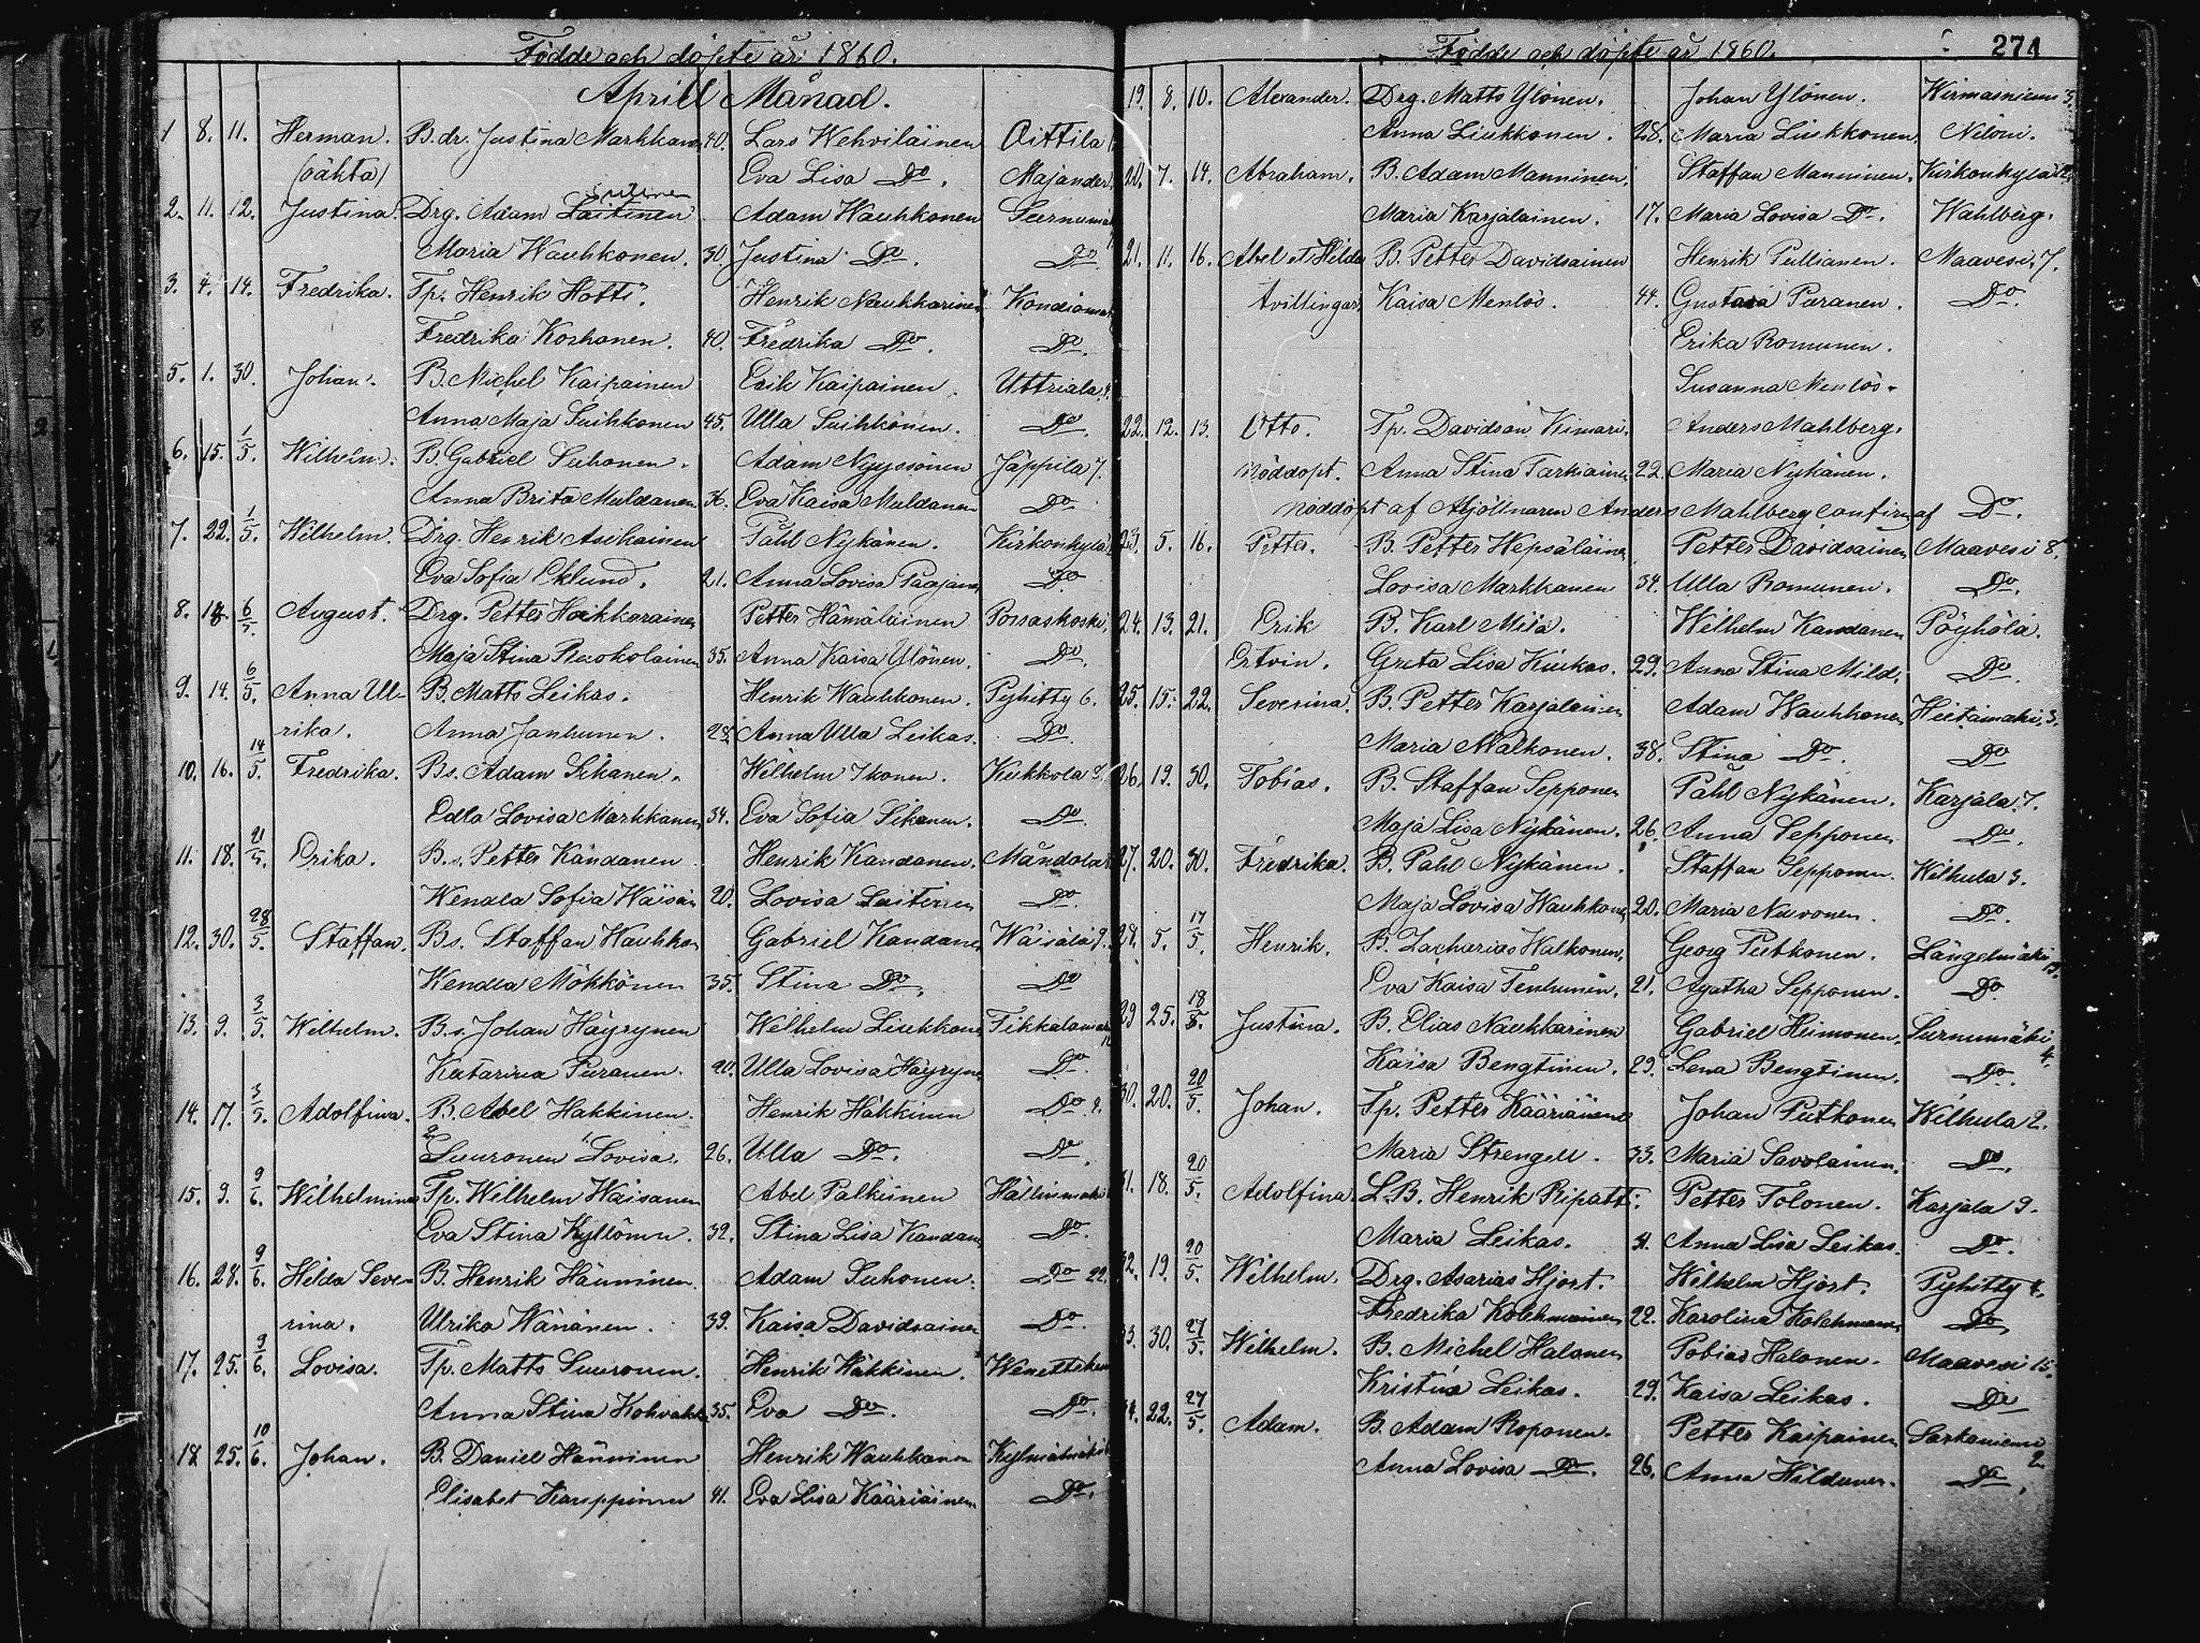 Födde och döpte år 1860.
April Månad.
1 8. 11. Herman. B. dr. Justina Markkan 40. Lars Wehviläinen Oittila
(oähta) Eva Lisa Do. Majander
2. 11. 12. Justina. Drg. Adam Laitinen Adam Wauhkonen
Maria Wauhkonen. 30 Justina Do. Do
3. 4. 14. Fredrika. Tp. Henrik Hotti. Henrik Naukkarinen
Fredrika Koskonen. 40. Fredrika Do. Do.
5. 1. 30. Johan. B. Michel Kaipainen Erik Kaipainen Uttriala
Anna Maja Suihkonen 45. Ulla Suihkonen. Do.
6. 15. 1/5. Wilhelm. B. Gabriel Suhonen. Adam Nyyssönen Jäppilä 7.
Anna Brita Muldanen 36. Eva Kaisa Muldanen Do
7. 22. 1/5. Wilhelm. Drg. Henrik Asikainen Påhl Nykänen. Kirkonkylä
Eva Sofia Eklund. 21. Anna Lovisa Do.
8. 18. 6/5. August. Drg. Petter Petter Hämäläinen Porsaskoski
Maja Stina 35. Anna Kaisa Ylönen. Do.
9. 14. 6/5. Anna Ul- B. Matts Leikas. Henrik Wauhkonen. Pyhitty 6.
rika. Anna Janhunen. 28. Anna Ulla Leikas. Do.
10. 16. 14/5. Fredrika. Bs. Adam Sikanen. Wilhelm Ikonen. Kukkola
Edla Lovisa Markkanen 34. Eva Sofia Sikanen. Do.
11. 18. 21/5. Erika. Bs. Petter Kandanen Henrik Kandanen. Mändola
Wendla Sofia Wäisän 20. Lovisa Laitinen Do.
12. 30. 28/5. Staffan. Bs. Staffan Wauhkon Gabriel Kandanen Wäisälä
Wendla Mökkönen 35. Stina Do. Do
13. 9. 3/5. Wilhelm. Bs. Johan Häyrynen Wilhelm Liukkonen Tikkalamäki
Katarina Puranen. 20. Ulla Lovisa Häyryn Do.
14. 17. 3/5. Adolfina. B. Abel Hakkinen. Henrik Hakkinen Do 2.
Suuronen Lovisa. 26. Ulla Do. Do.
15. 9. 9/6. Wilhelmina Tp. Wilhelm Waisanen Abel Palkinen
Eva Stina Kyllönen. 32. Stina Lisa Kandan Do.
16. 28. 9/6. Hilda Seve- B. Henrik Hänninen. Adam Suhonen. Do 22.
rina. Ulrika Wänänen. 39. Kaisa Davidsainen Do.
17. 25. 9/6. Lovisa. Tp. Matts Suuronen. Henrik Häkkinen.
Anna Stina 35. Eva Do. Do.
18 25. 10/6. Johan. B. Daniel Hänninen Henrik Wauhkonen
Elisabet Karppinen 41. Eva Lisa Kääriäinen Do.
Födde och döpte år 1860. 274
19. 8. 10. Alexander. Drg. Matts Ylönen. Johan Ylönen. Wirmasniemi 3.
Anna Liukkonen. 28. Maria Liukkonen. Niloni.
20. 7. 14. Abraham. B. Adam Manninen. Staffan Manninen. Kirkonkylä
Maria Karjalainen. 17. Maria Lovisa Do. Wahlberg.
21. 11. 16. Abel et Hilda B. Petter Davidsainen Henrik Pullianen. Maavesi 7.
tvillingar Kaisa Menlös. 44. Gustava Puranen. Do.
Erika Romunen.
Susanna Menlös.
22. 12. 13. Otto. Tp. Davidson Anders Mahlberg.
nöddöpt. Anna Stina 22. Maria Nykänen.
nöddöpt af Mjöllnaren Anders Mahlberg confirm. af Do.
23. 5. 16. Petter. B. Petter Hepsäläinen Petter Davidsainen Maavesi 8.
Lovisa Markkanen 34. Ulla Romunen. Do.
24. 13. 21. Erik B. Karl Wilhelm Kandanen Pöyhölä.
Ertvin. Greta Lisa Kiukas. 29. Anna Stina Mild. Do.
25. 15. 22. Severina. B. Petter Karjalainen Adam Wauhkonen Hietamäki 3.
Maria Malkonen. 38. Stina Do. Do
26. 19. 30. Tobias. B. Staffan Sepponen Påhl Nykänen. Karjala 7.
Maja Lisa Nykänen. 26. Anna Sepponen Do.
27. 20. 30. Fredrika. B. Påhl Nykänen. Staffan Sepponen. Wilhula 3.
Maja Lovisa Wauhkonen 20. Maria Nuvonen. Do.
28. 5. 17/5 Henrik. B. Zacharias Walkonen. Georg Putkonen. Längelmäki
Eva Kaisa Tenhunen. 21. Agatha Sepponen. Do.
29 25. 18/5. Justina. B. Elias Naukkarinen Gabriel Heimonen. Surnumäki 4.
Kaisa Bengtinen. 29. Lena Bengtinen. Do.
30. 20. 20/5. Johan. Tp. Petter Kääriäinen Johan Putkonen Wilhula 2.
Maria Strengell. 33. Maria Savolainen. Do.
31. 18. 20/5. Adolfina. L.B. Henrik Ripatti. Petter Tolonen. Karjala 9.
Maria Leikas. Anna Lisa Leikas. Do.
32. 19. 20/5. Wilhelm. Drg. Asarias Hjort. Wilhelm Hjort. Pyhitty 4.
Fredrika Kolehmainen 22. Karolina Kolehmain Do
33. 30. 27/5. Wilhelm. B. Michel Halonen Tobias Halonen. Maavesi 15.
Kristina Leikas. 29. Kaisa Leikas. Do
34. 22. 27/5. Adam. B. Adam Roponen. Petter Kaipainen Sarkaniemi 2.
Anna Lovisa Do. 26. Anna Hildunen. Do.